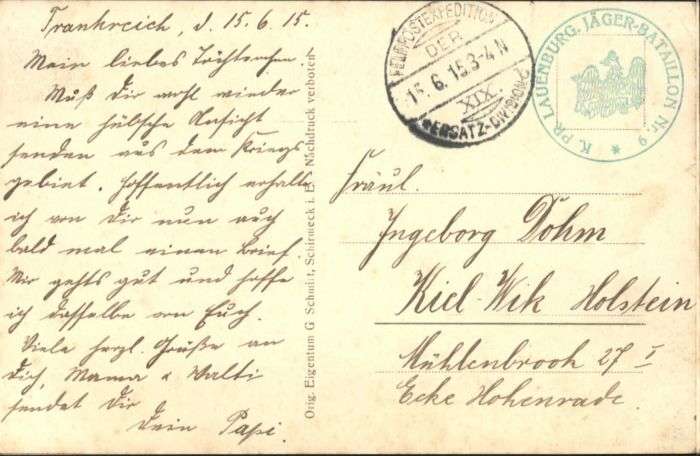 Frankreich, d. 15.6.15.
Mein liebes Töchterchen!
Muß Dir wohl wieder
eine hübsche Ansicht
senden aus dem Kriegs
gebiet. Hoffentlich erhalte
ich von Dir nun auch
bald mal einen Brief.
Mir gehts gut und hoffe
ich dasselbe von Euch.
Viele herzl. Grüße an
Dich, Mama & Walti
sendet Dir
Dein Papi.
Orig. Eigentum G. Schmidt, Schirmeck i. E. Nachdruck verboten
FELDPOSTEXPEDITION
DER
15.6.15.3-4N
XIX.
*ERSATZ-DIVISION
K. PR. LAUENBURG. JÄGER-BATAILLON Nr. 9 *
Fräul.
Ingeborg Dohm
Kiel-Wik Holstein
Mühlenbrook 27 I
Ecke Hohenrade.